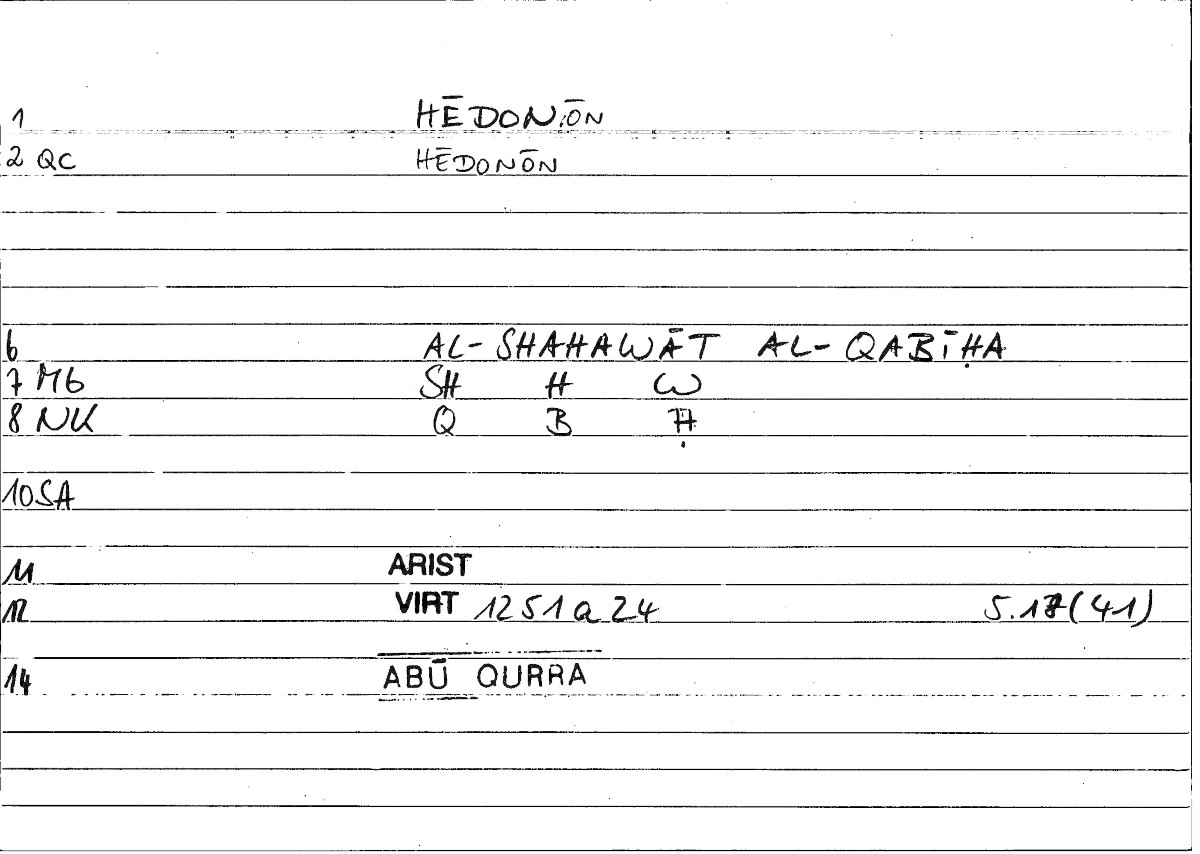 1 HĒDONŌN
2 QC HĒDONŌN
6 AL-SHAHAWĀT AL-QABĪḤA
7 M6 SH H W
8 NK Q B Ḥ
10 SA
11 ARIST
12 VIRT 1251a24 5.17(41)
14 ABŪ QURRA